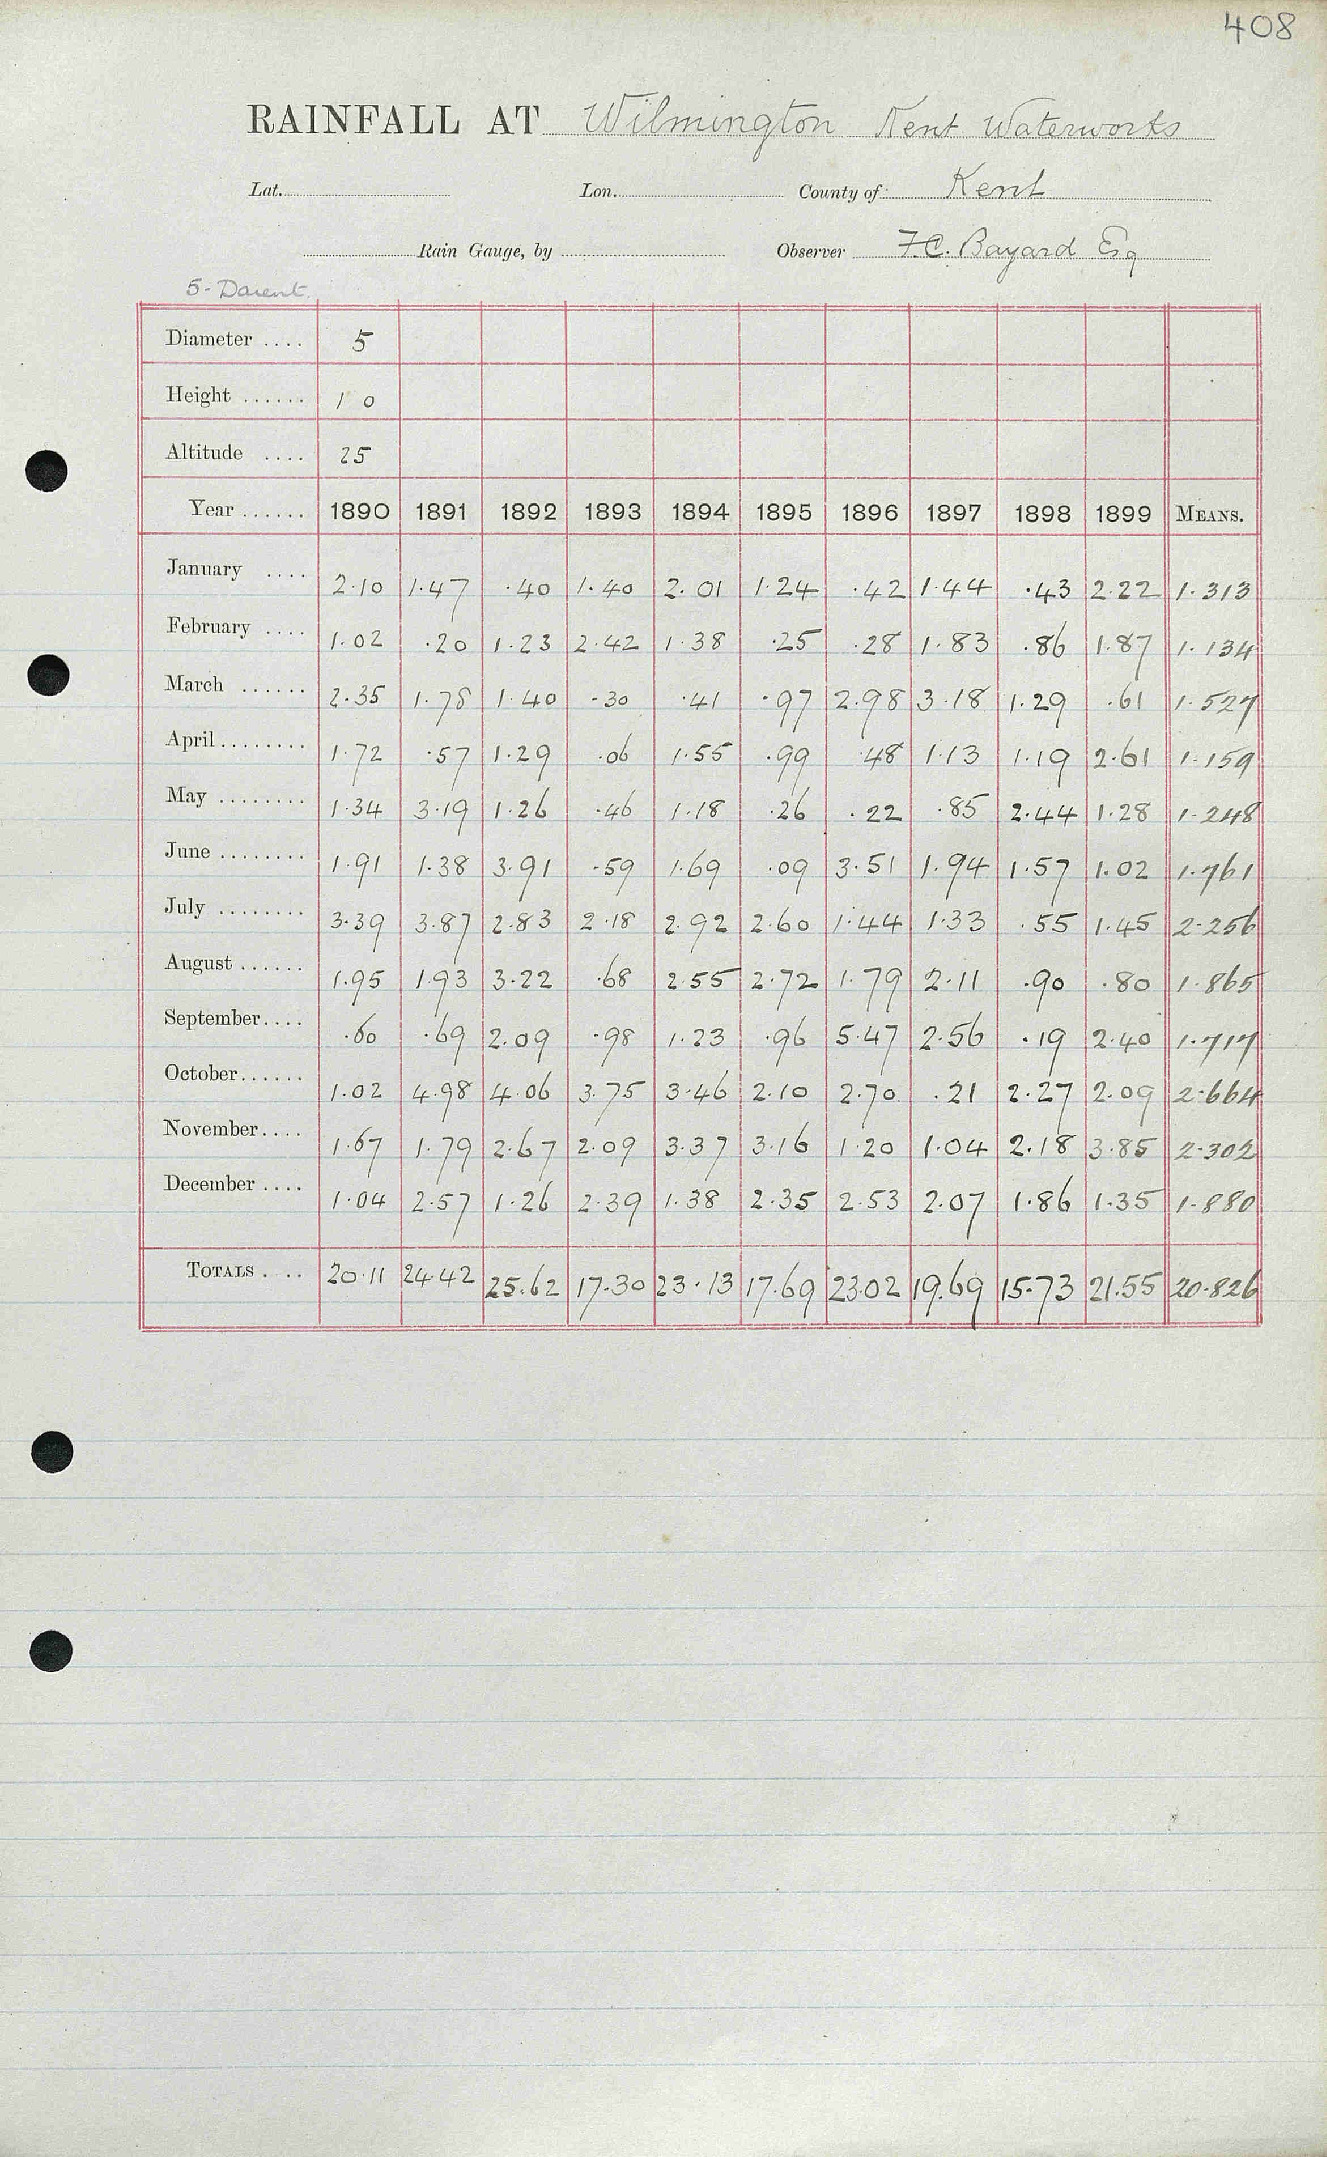 408
RAINFALL AT Wilmington Kent Waterworks
Lat. Lon. County of Kent
Rain Gauge, by Observer F.C. Bayard Esq
5 - Darent
Diameter .... 5
Height ...... 1 0
Altitude .... 25
Year ...... 1890 1891 1892 1893 1894 1895 1896 1897 1898 1899 MEANS.
January .... 2.10 1.47 .40 1.40 2.01 1.24 .42 1.44 .43 2.22 1.313
February .... 1.02 .20 1.23 2.42 1.38 .25 .28 1.83 .86 1.87 1.134
March ...... 2.35 1.78 1.40 .30 .41 .97 2.98 3.18 1.29 .61 1.527
April ........ 1.72 .57 1.29 .06 1.55 .99 .48 1.13 1.19 2.61 1.159
May ........ 1.34 3.19 1.26 .46 1.18 .26 .22 .85 2.44 1.28 1.248
June ........ 1.91 1.38 3.91 .59 1.69 .09 3.51 1.94 1.57 1.02 1.761
July ........ 3.39 3.87 2.83 2.18 2.92 2.60 1.44 1.33 .55 1.45 2.256
August ...... 1.95 1.93 3.22 .68 2.55 2.72 1.79 2.11 .90 .80 1.865
September .... .60 .69 2.09 .98 1.23 .96 5.47 2.56 .19 2.40 1.717
October ...... 1.02 4.98 4.06 3.75 3.46 2.10 2.70 .21 2.27 2.09 2.664
November .... 1.67 1.79 2.67 2.09 3.37 3.16 1.20 1.04 2.18 3.85 2.302
December .... 1.04 2.57 1.26 2.39 1.38 2.35 2.53 2.07 1.86 1.35 1.880
TOTALS .... 20.11 24.42 25.62 17.30 23.13 17.69 23.02 19.69 15.73 21.55 20.826